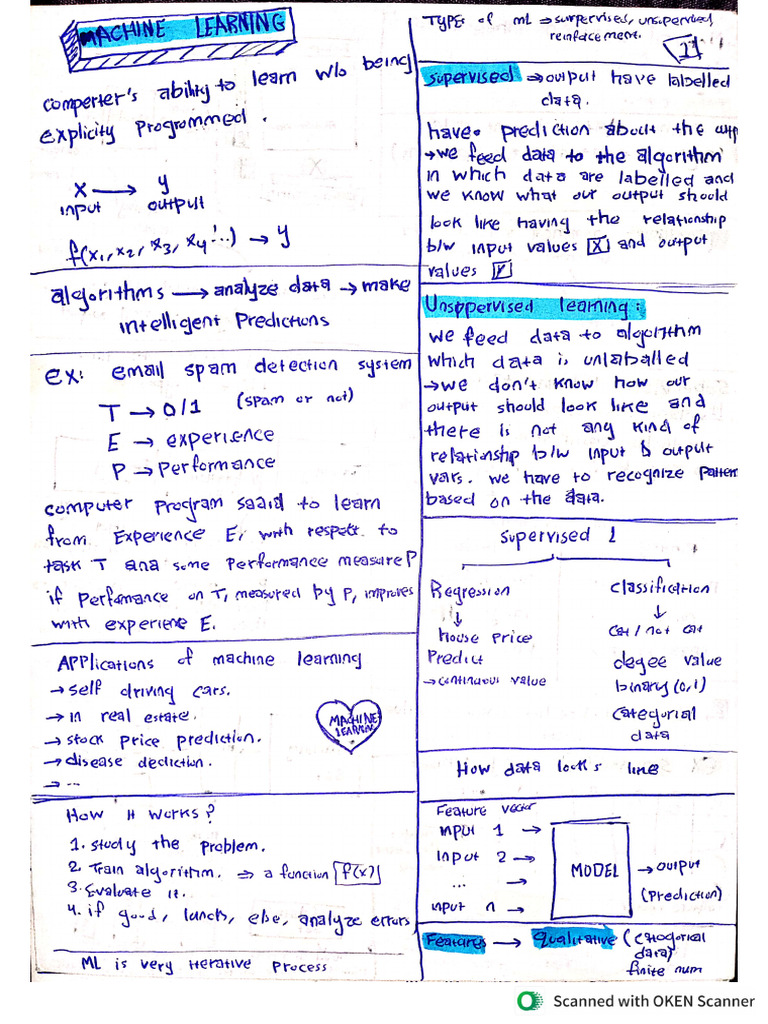 MACHINE LEARNING
computer's ability to learn w/o being
explicity programmed.
x → y
input output
f(x1, x2, x3, x4 ...) → y
algorithms → analyze data → make
intelligent Predictions
ex: email spam detection system
T → 0/1 (spam or not)
E → experience
P → Performance
computer program saaid to learn
from Experience E, with respect to
task T and some Performance measure P
if Perfomance on T, measured by P, improves
with experiene E.
APPlications of machine learning
→ self driving cars.
→ in real estate.
→ stock price prediction.
→ disease dediction.
→ ...
MACHINE
LEARNING
How it works?
1. study the problem.
2. Train algorithm. ⇒ a function f(x)
3. Evaluate it.
4. if good, lunch, else, analyze errors
ML is very iterative process
TYPES of ML ⇒ surpervised, unsupervised
reinfacement.
supervised → output have labelled
data.
have prediction about the outp
→ we feed data to the algorithm
in which data are labelled and
we know what our output should
look like having the relationship
b/w input values X and output
values Y
Unsppervised learning:
we feed data to algorithm
which data is unlaballed
→ we don't know how our
output should look like and
there is not any kind of
relationship b/w input & output
vars. we have to recognize Pattern
based on the data.
supervised 1
Regression
↓
house price
Predict
→ continuous value
classification
↓
cat / not cat
degee value
binary (0,1)
categorial
data
How data looks line
Feature vector
input 1 →
input 2 →
... →
input n →
MODEL
→ output
(prediction)
Features → Qualitative (catogorical
data)
finite num
Scanned with OKEN Scanner